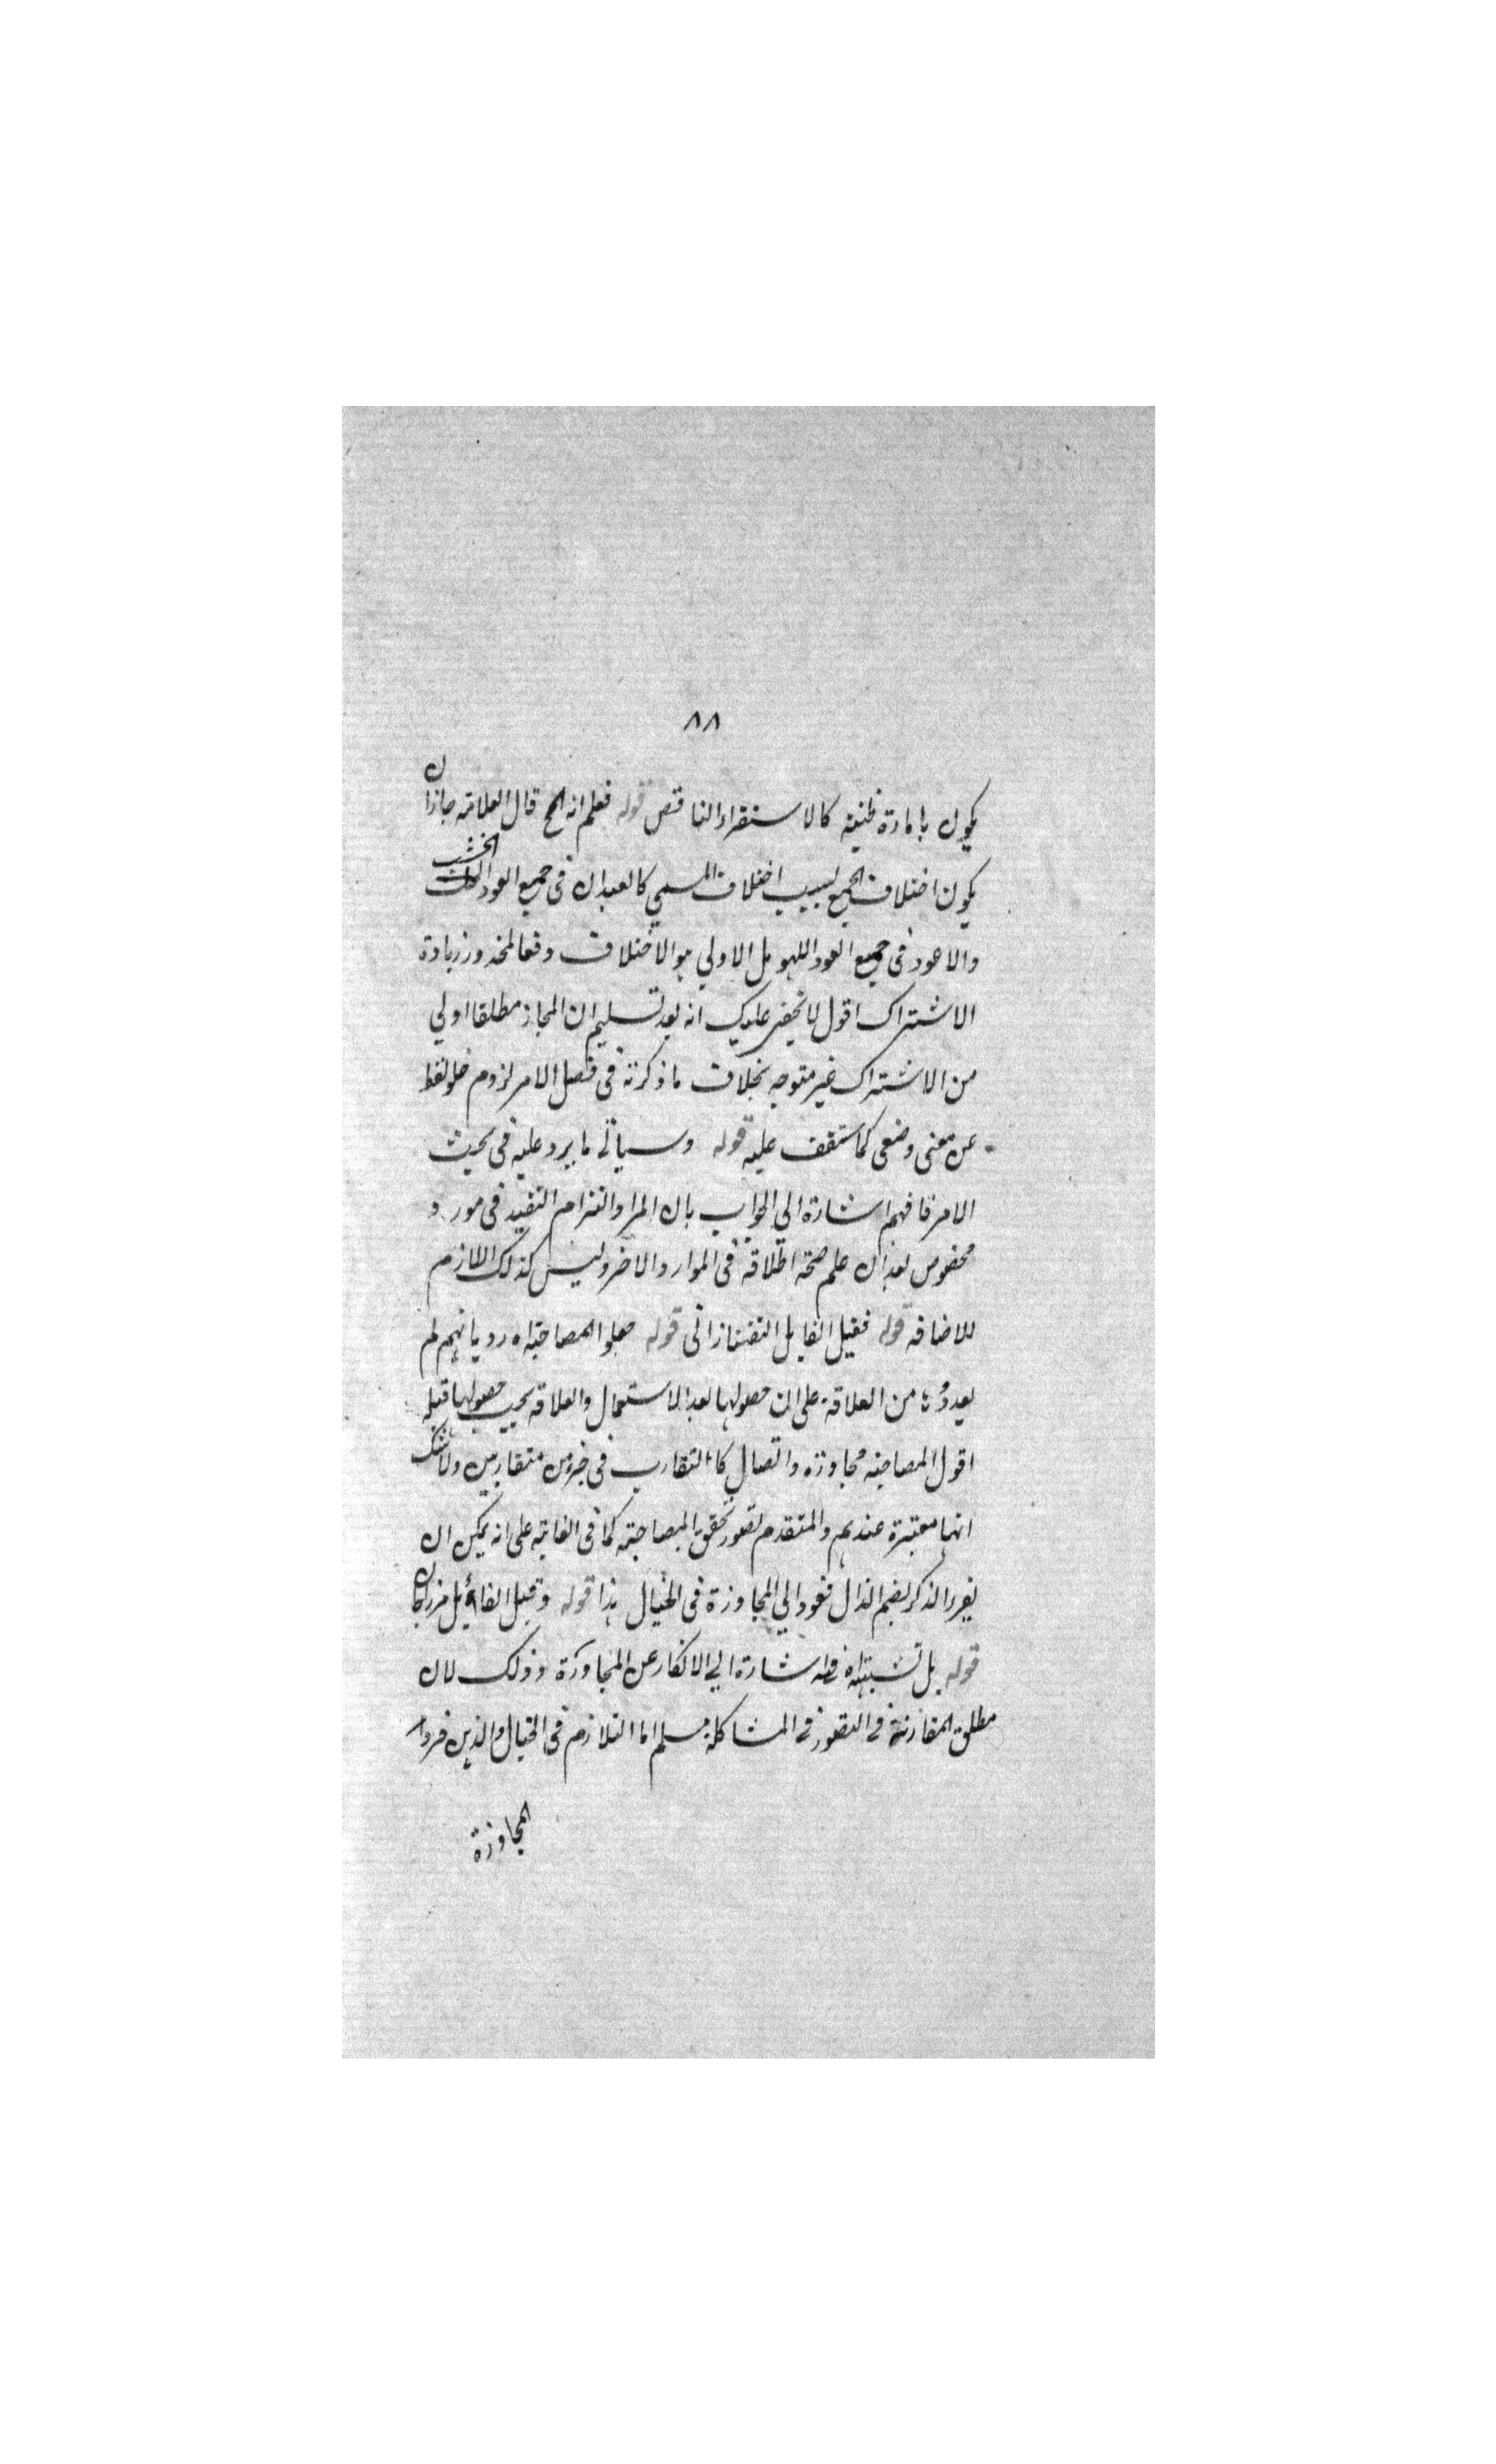 ٨٨
يكون بامارة ظنية كالاستقراء الناقص قوله فعلم انه الخ قال العلامة جاز ان
يكون اختلاف الجمع بسبب اختلاف المسمي كالعيدان في جميع العود الخشب
والاعود في جميع العود اللهو بل الاولي هو الاختلاف دفعا لمحذور زيادة
الاشتراك اقول لا يخفي عليك انه بعد تسليم ان المجاز مطلقا اولي
من الاشتراك غير متوجه بخلاف ما ذكرته في فصل الامر لزوم خلو لفظ
عن معنى وضعي كما ستقف عليه قوله وسياتي ما يرد عليه في بحث
الامر فافهم اشارة الي الجواب بان المراد التزام التقييد في مورد
مخصوص بعد ان علم صحة اطلاقه في الموارد الاخر وليس كذلك اللازم
للاضافه قوله فقيل القايل التفتازاني قوله جعلوا المصاحبة اه رد بانهم لم
يعدوها من العلاقة على ان حصولها بعد الاستعمال والعلاقة يجب حصولها قبله
اقول المصاحبه مجاورة واتصال كالتقارب في جزءين متقاربين ولا شك
انها معتبرة عندهم والمتقدم تصور تحقق المصاحبة كما في الغاية على انه يمكن ان
يقرء الذكر بضم الذال فعود الي المجاورة في الخيال هذا قوله وقيل القائل مرزاجان
قوله بل تشبيه اه فيه اشارة الي الانكار عن المجاورة وذلك لان
مطلق المقارنة في التصور في المشاكلة مسلم اما التلازم في الخيال والذين فسروا
المجاورة